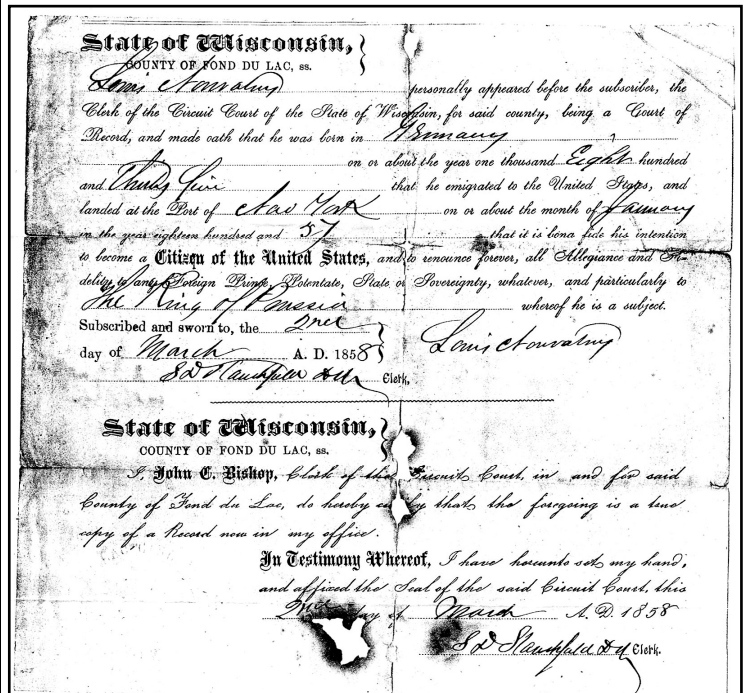 State of Wisconsin,
COUNTY OF FOND DU LAC, ss.
Louis personally appeared before the subscriber, the
Clerk of the Circuit Court of the State of Wisconsin, for said county, being a Court of
Record, and made oath that he was born in Germany
on or about the year one thousand Eight hundred
and Thirty five that he emigrated to the United States, and
landed at the Port of New York on or about the month of January
in the year eighteen hundred and 57 that it is bona fide his intention
to become a Citizen of the United States, and to renounce forever, all Allegiance and Fi-
delity to any Foreign Prince, Potentate, State or Sovereignty, whatever, and particularly to
The King of Prussia whereof he is a subject.
Subscribed and sworn to, the 2nd
day of March A. D. 1858
Louis
S D Clerk.
State of Wisconsin,
COUNTY OF FOND DU LAC, ss.
I, John C. Bishop, Clerk of the Circuit Court, in and for said
County of Fond du Lac, do hereby certify that the foregoing is a true
copy of a Record now in my office.
In Testimony Whereof, I have hereunto set my hand,
and affixed the Seal of the said Circuit Court, this
2nd day of March A. D. 1858
S D Clerk.